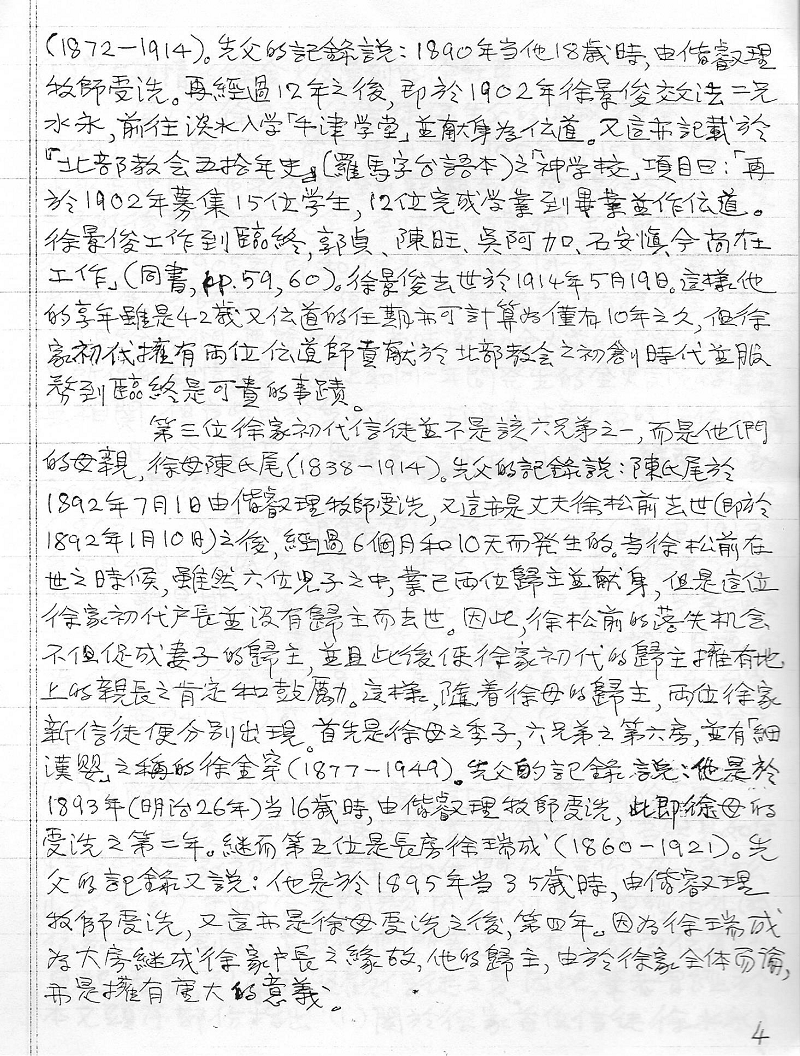 (1872-1914)。先父的記錄說：1890年当他18歲時,由偕叡理
牧師受洗。再經過12年之後,即於1902年徐景俊效法二兄
水永,前往淡水入学「牛津学堂」並献身為伝道。又這亦記載於
『北部教会五拾年史』(羅馬字台語本)之「神学校」項目曰：「再
於1902年募集15位学生,12位完成学業到畢業並作伝道。
徐景俊工作到臨終,郭貞、陳旺、吳阿加、石安慎,今尚在
工作」(同書,pp.59,60)。徐景俊去世於1914年5月19日。這樣他
的享年雖是42歲又伝道的任期亦可計算為僅有10年之久,但徐
家初代擁有两位伝道師貢献於北部教会之初創時代並服
務到臨終是可貴的事蹟。
第三位徐家初代信徒並不是該六兄弟之一,而是他們
的母親,徐母陳氏尾(1838-1914)。先父的記錄說：陳氏尾於
1892年7月1日由偕叡理牧師受洗,又這亦是丈夫徐松前去世(即於
1892年1月10日)之後,經過6個月和10天而發生的。当徐松前在
世之時候,雖然六位兒子之中,業已两位歸主並献身,但是這位
徐家初代户長並沒有歸主而去世。因此,徐松前的落失机会
不但促成妻子的歸主,並且此後使徐家初代的歸主擁有地
上的親長之肯定和鼓勵。這樣,隨着徐母的歸主,两位徐家
新信徒便分別出現。首先是徐母之季子,六兄弟之第六房,並有「細
漢嬰」之稱的徐金寧(1877-1949)。先父的記錄說：他是於
1893年(明治26年)当16歲時,由偕叡理牧師受洗,此即徐母的
受洗之第二年。継而第五位是長房徐瑞成(1860-1921)。先
父的記錄又說：他是於1895年当35歲時,由偕叡理
牧師受洗,又這亦是徐母受洗之後,第四年。因為徐瑞成
為大房継成徐家户長之緣故,他的歸主,由於徐家全体而論,
亦是擁有重大的意義。
4